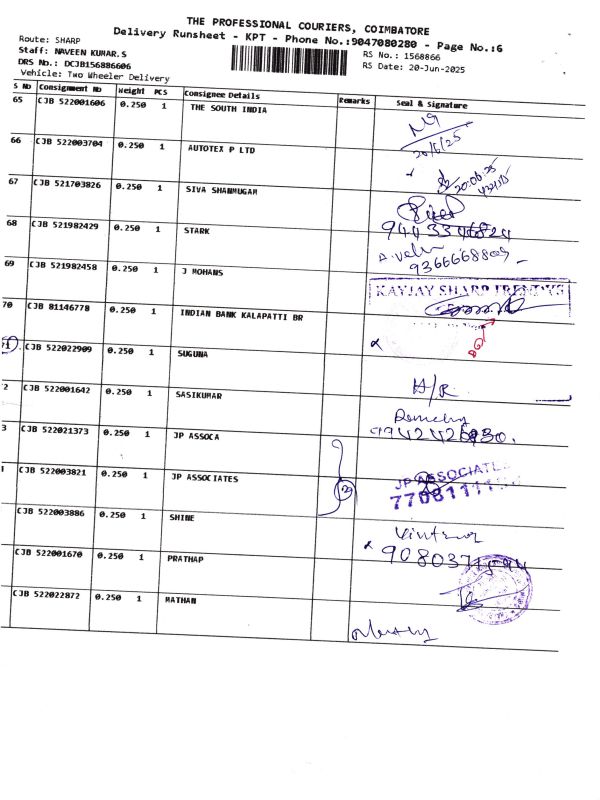 THE PROFESSIONAL COURIERS, COIMBATORE
Delivery Runsheet - KPT - Phone No.:9047080280 - Page No.:6
Route: SHARP
Staff: NAVEEN KUMAR.S
RS No.: 1568866
DRS No.: DCJB156886606
RS Date: 20-Jun-2025
Vehicle: Two Wheeler Delivery
S No Consignment No Weight PCS Consignee Details Remarks Seal & Signature
65 CJB 522001606 0.250 1 THE SOUTH INDIA
20/6/25
66 CJB 522003704 0.250 1 AUTOTEX P LTD
20.06.25
67 CJB 521703826 0.250 1 SIVA SHANMUGAM
68 CJB 521982429 0.250 1 STARK
69 CJB 521982458 0.250 1 J MOHANS
KAYJAY SHARP
70 CJB 81146778 0.250 1 INDIAN BANK KALAPATTI BR
CJB 522022909 0.250 1 SUGUNA
2 CJB 522001642 0.250 1 SASIKUMAR
3 CJB 522021373 0.250 1 JP ASSOCA
CJB 522003821 0.250 1 JP ASSOCIATES
JP ASSOCIATE
CJB 522003886 0.250 1 SHINE
CJB 522001670 0.250 1 PRATHAP
CJB 522022872 0.250 1 MATHAN